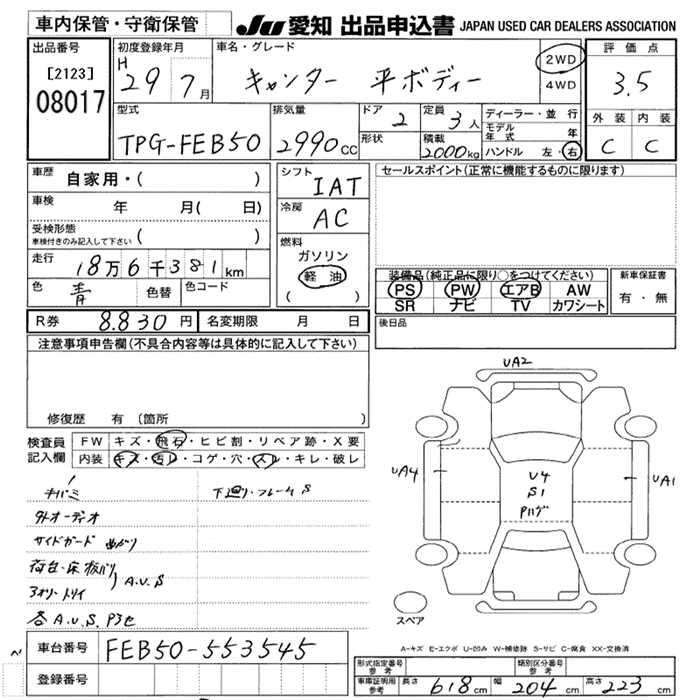 車内保管・守衛保管
JU 愛知 出品申込書 JAPAN USED CAR DEALERS ASSOCIATION
出品番号
[2123]
08017
初度登録年月
H 29 7月
車名・グレード
キャンター 平ボディー
2WD
4WD
評価点
3.5
外装 内装
C C
型式
TPG-FEB50
排気量
2990cc
ドア
2
形状
定員
3人
積載
2000kg
ディーラー・並行
モデル年式 年
ハンドル 左・右
車歴
自家用・( )
車検 年 月( 日)
受検形態
車検付きのみ記入して下さい ( )
走行
18万6千381km
色 青 色替 色コード
シフト
IAT
冷房
AC
燃料
ガソリン
軽油
( )
セールスポイント(正常に機能するものに限ります)
装備品(純正品に限り○をつけてください)
PS PW エアB AW
SR ナビ TV カワシート
新車保証書
有・無
R券 8.830円 名変期限 月 日
後日品
注意事項申告欄(不具合内容等は具体的に記入して下さい)
修復歴 有(箇所 )
検査員記入欄
FW キズ・飛石・ヒビ割・リペア跡・X要
内装 キズ・汚レ・コゲ・穴・スレ・キレ・破レ
キバミ 下廻り・フレームS
外オーディオ
サイドガード 曲がり
荷台・床板バリ
3方トリイ A.U.S
各A.U.S.
UA2
UA4
UA1
U4
S1
Pハゲ
スペア
A-キズ E-エクボ U-凹み W-補修跡 S-サビ C-腐食 XX-交換済
車台番号 FEB50-553545
登録番号
形式指定番号 参考
類別区分番号 参考
車庫証明用 参考 長さ 618cm 幅 204cm 高さ 223cm